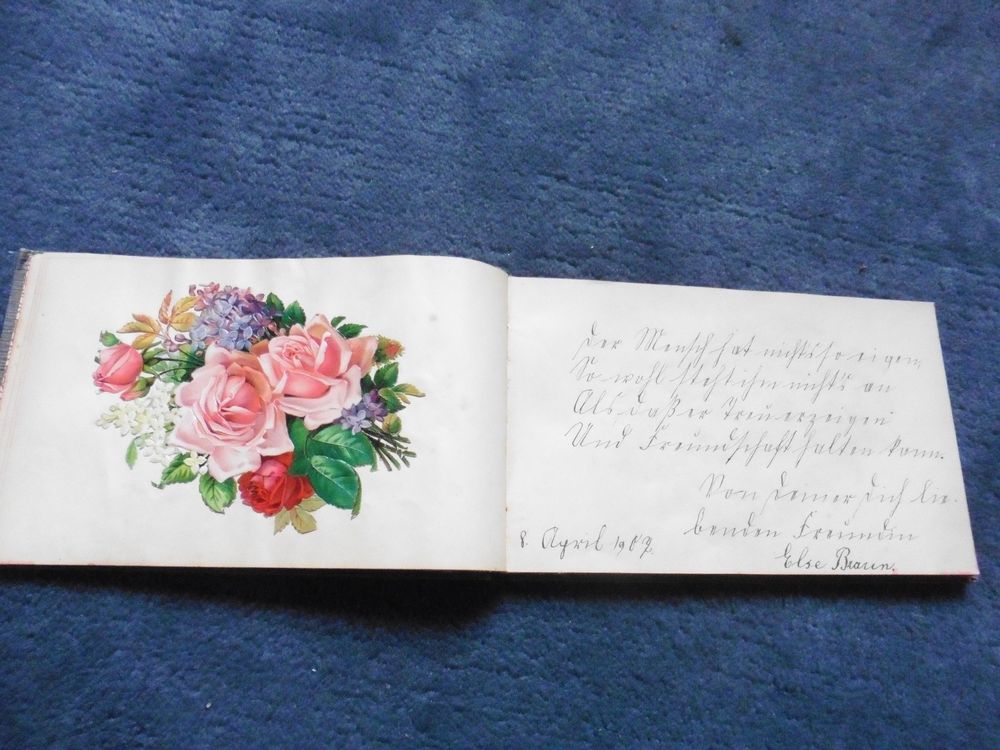 Der Mensch hat nichts so eigen
So wohl steht ihm nichts an
Als daß er Treu erzeigen
Und Freundschaft halten kann.
Von Deiner Dich lie-
benden Freundin
8. April 1907.
Else Braun.